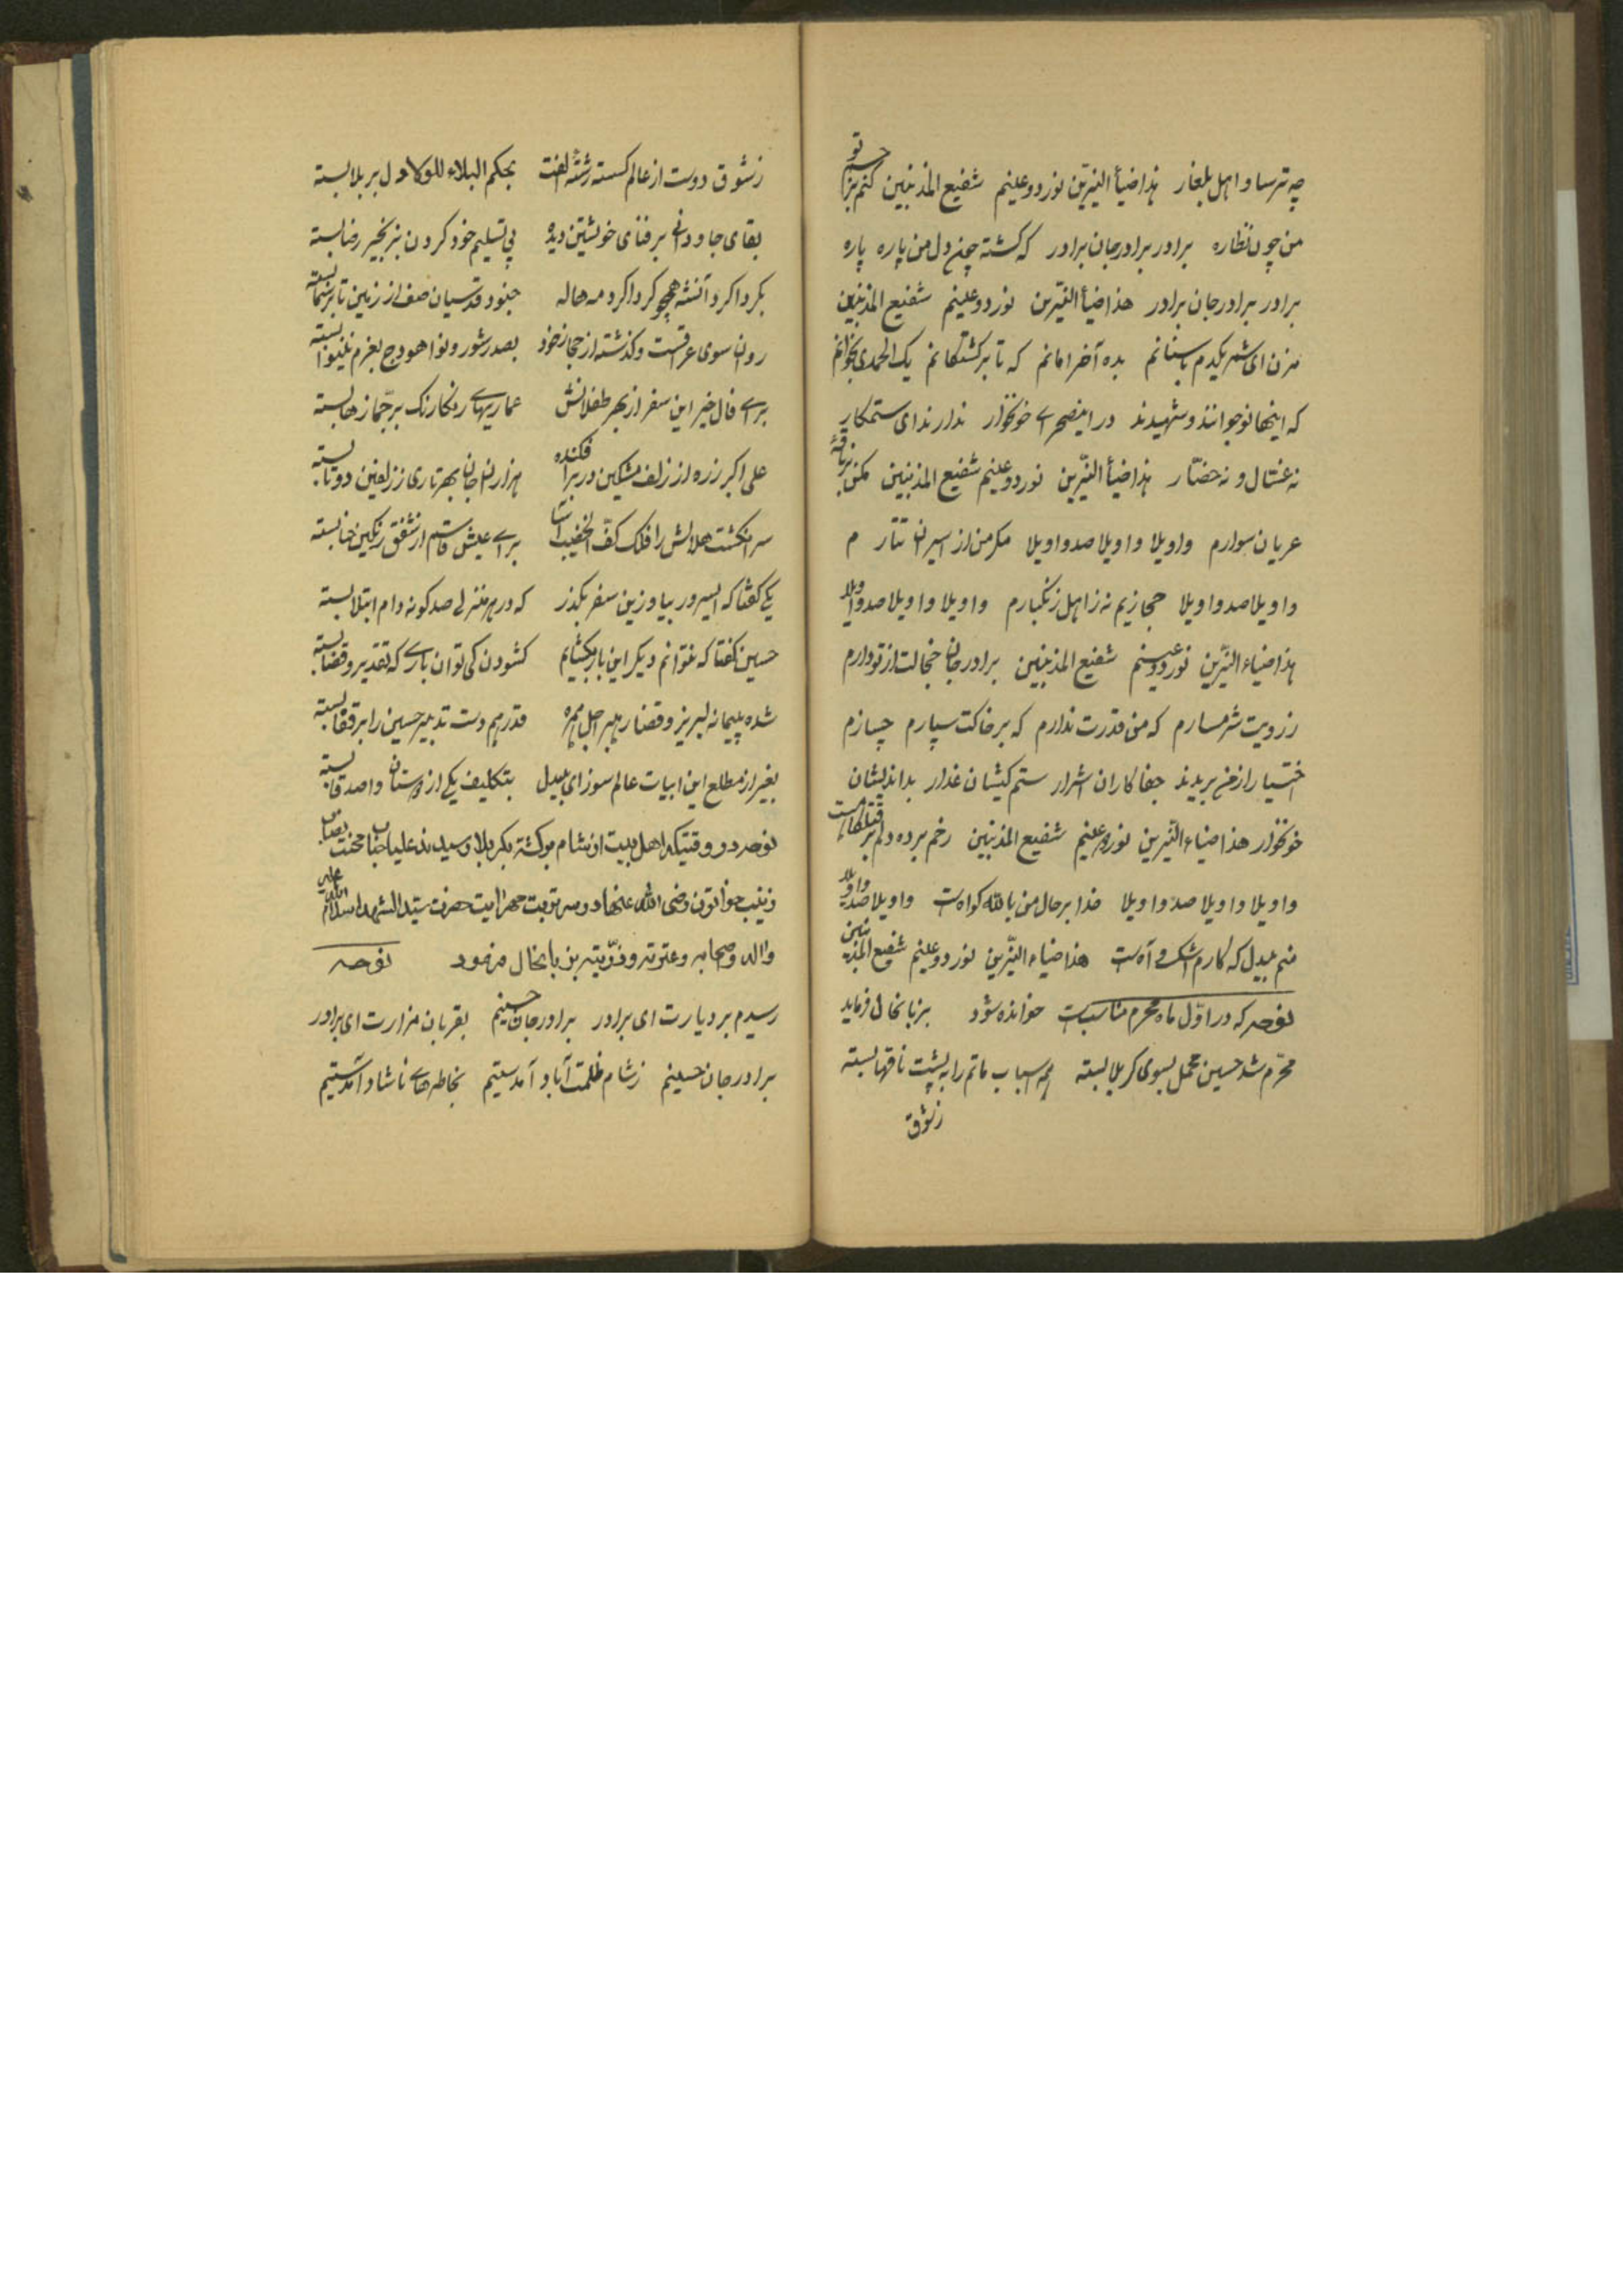 چه ترسا و اهل بلغار هذا ضیأ النیّرین نور دو عینم شفیع المذنبین کنم بر جسم تو
من چون نظاره برادر برادر جان برادر که گشته چون دل من پاره پاره
برادر برادر جان برادر هذا ضیأ النیّرین نور دو عینم شفیع المذنبین
مزن ای شمر یکدم با سنانم بده آخر امانم که تا بر کشتگانم یک الحمدی بخوانم
که اینها نوجوانند و شهیدند در اینصحرای خونخوار ندارند ای ستمکار
نه غسّال و نه حضّار هذا ضیأ النیّرین نور دو عینم شفیع المذنبین مکن بر ناقهٔ
عریان سوارم واویلا واویلا صد واویلا مگر من از اسیران تتارم
واویلا صد واویلا حجازیم نه زاهل زنگبارم واویلا واویلا صد واویلا
هذا ضیاء النیّرین نور دو عینم شفیع المذنبین برادر جان خجالت از تو دارم
ز رویت شرمسارم که من قدرت ندارم که بر خاکت سپارم چسازم
اختیار از من بریدند جفاکاران اشرار ستم کیشان غدار بد اندیشان
خونخوار هذا ضیاء النیّرین نور دو عینم شفیع المذنبین رخم برده دلم بر قتلگاهست
واویلا واویلا صد واویلا خدا بر حال من بالله گواهست واویلا صد واویلا
منم بیدل که کارم اشک و آهست هذا ضیاء النیّرین نور دو عینم شفیع المذنبین
نوحه که در اوّل ماه محرم مناسبست خوانده شود بزبانحال فرماید
محرّم شد حسین محمل بسوی کربلا بسته همه اسباب ماتم را به پشت ناقها بسته
ز شوق
ز شوق دوست از عالم گسسته رشتهٔ الفت بحکم البلاء للولا دل بر بلا بسته
بقای جاودانی بر فنای خویشتن دیده پی تسلیم خود گردن بزنجیر رضا بسته
بگرداگرد آنشه همچو گرداگرد مه هاله جنود قدسیان صف از زمین تا بر سما بسته
روان سوی عراقست و گذشته از حجاز خود بصد شور و نوا هودج بعزم نینوا بسته
برای فال خیر این سفر از بهر طفلانش عماریهای رنگارنگ بر جمّازها بسته
علی اکبر زره از زلف مشکین در بر افکنده هزاران جان بهر تاری ز زلفین دوتا بسته
سر انگشت هلالش را فلک کفّ الخضیب آسا برای عیش قاسم از شفق رنگین حنا بسته
یکی گفتا که ایسرور بیا و زین سفر بگذر که در هر منزلی صدگونه دام ابتلا بسته
حسین گفتا که نتوانم دیگر این بار بگشایم گشودن کی توان باری که تقدیر و قضا بسته
شده پیمانه لبریز و قضا رهبر اجل همره قدر هم دست تدبیر حسین را بر قفا بسته
بغیر از مطلع این ابیات عالم سوز ای بیدل بتکلیف یکی از دوستان و اصدقا بسته
نوحه در وقتیکه اهل بیت از شام برگشته بکربلا رسیدند علیا جناب
زینب خواتون رضی الله عنها در سر تربت حضرت سیّد الشهدا سلام الله علیه
و آله و صحابه و عترته و ذرّیته بزبانحال فرمود نوحه
رسیدم بر دیارت ای برادر برادر جان حسینم بقربان مزارت ای برادر
برادر جان حسینم ز شام ظلمت آباد آمدستیم بخاطرهای ناشاد آمدستیم